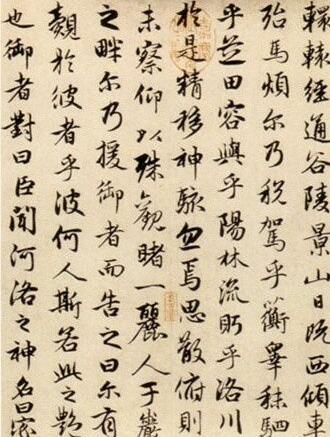 轘轅經通谷陵景山日既西傾車
殆馬煩尔乃稅駕乎蘅皋秣駟
乎芝田容與乎陽林流眄乎洛川
於是精移神駭忽焉思散俯則
未察仰以殊觀睹一麗人于巖
之畔尔乃援御者而告之曰尔有
覿於彼者乎彼何人斯若此之艷
也御者對曰臣聞河洛之神名曰宓